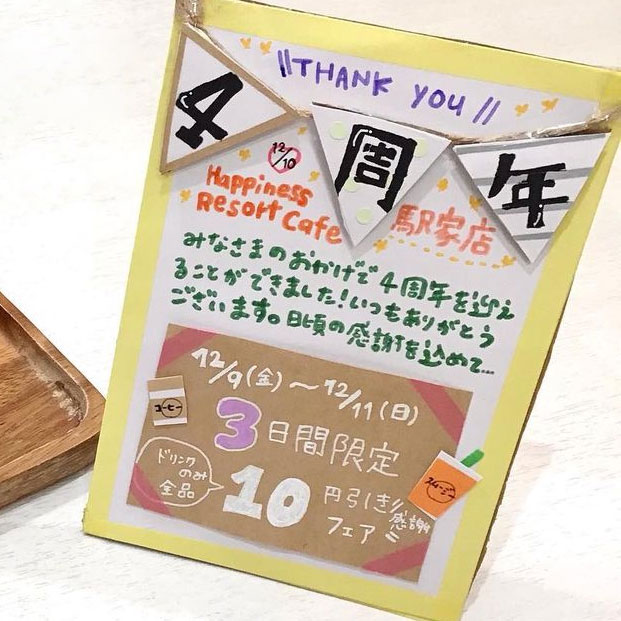 \\THANK YOU//
4周年
12/10
Happiness
Resort Cafe 駅家店
みなさまのおかげで4周年を迎え
ることができました!いつもありがとう
ございます。日頃の感謝を込めて...
12/9(金)～12/11(日)
コーヒー
3日間限定
ドリンク
のみ
全品
10円引き
感謝
フェア
スムージー